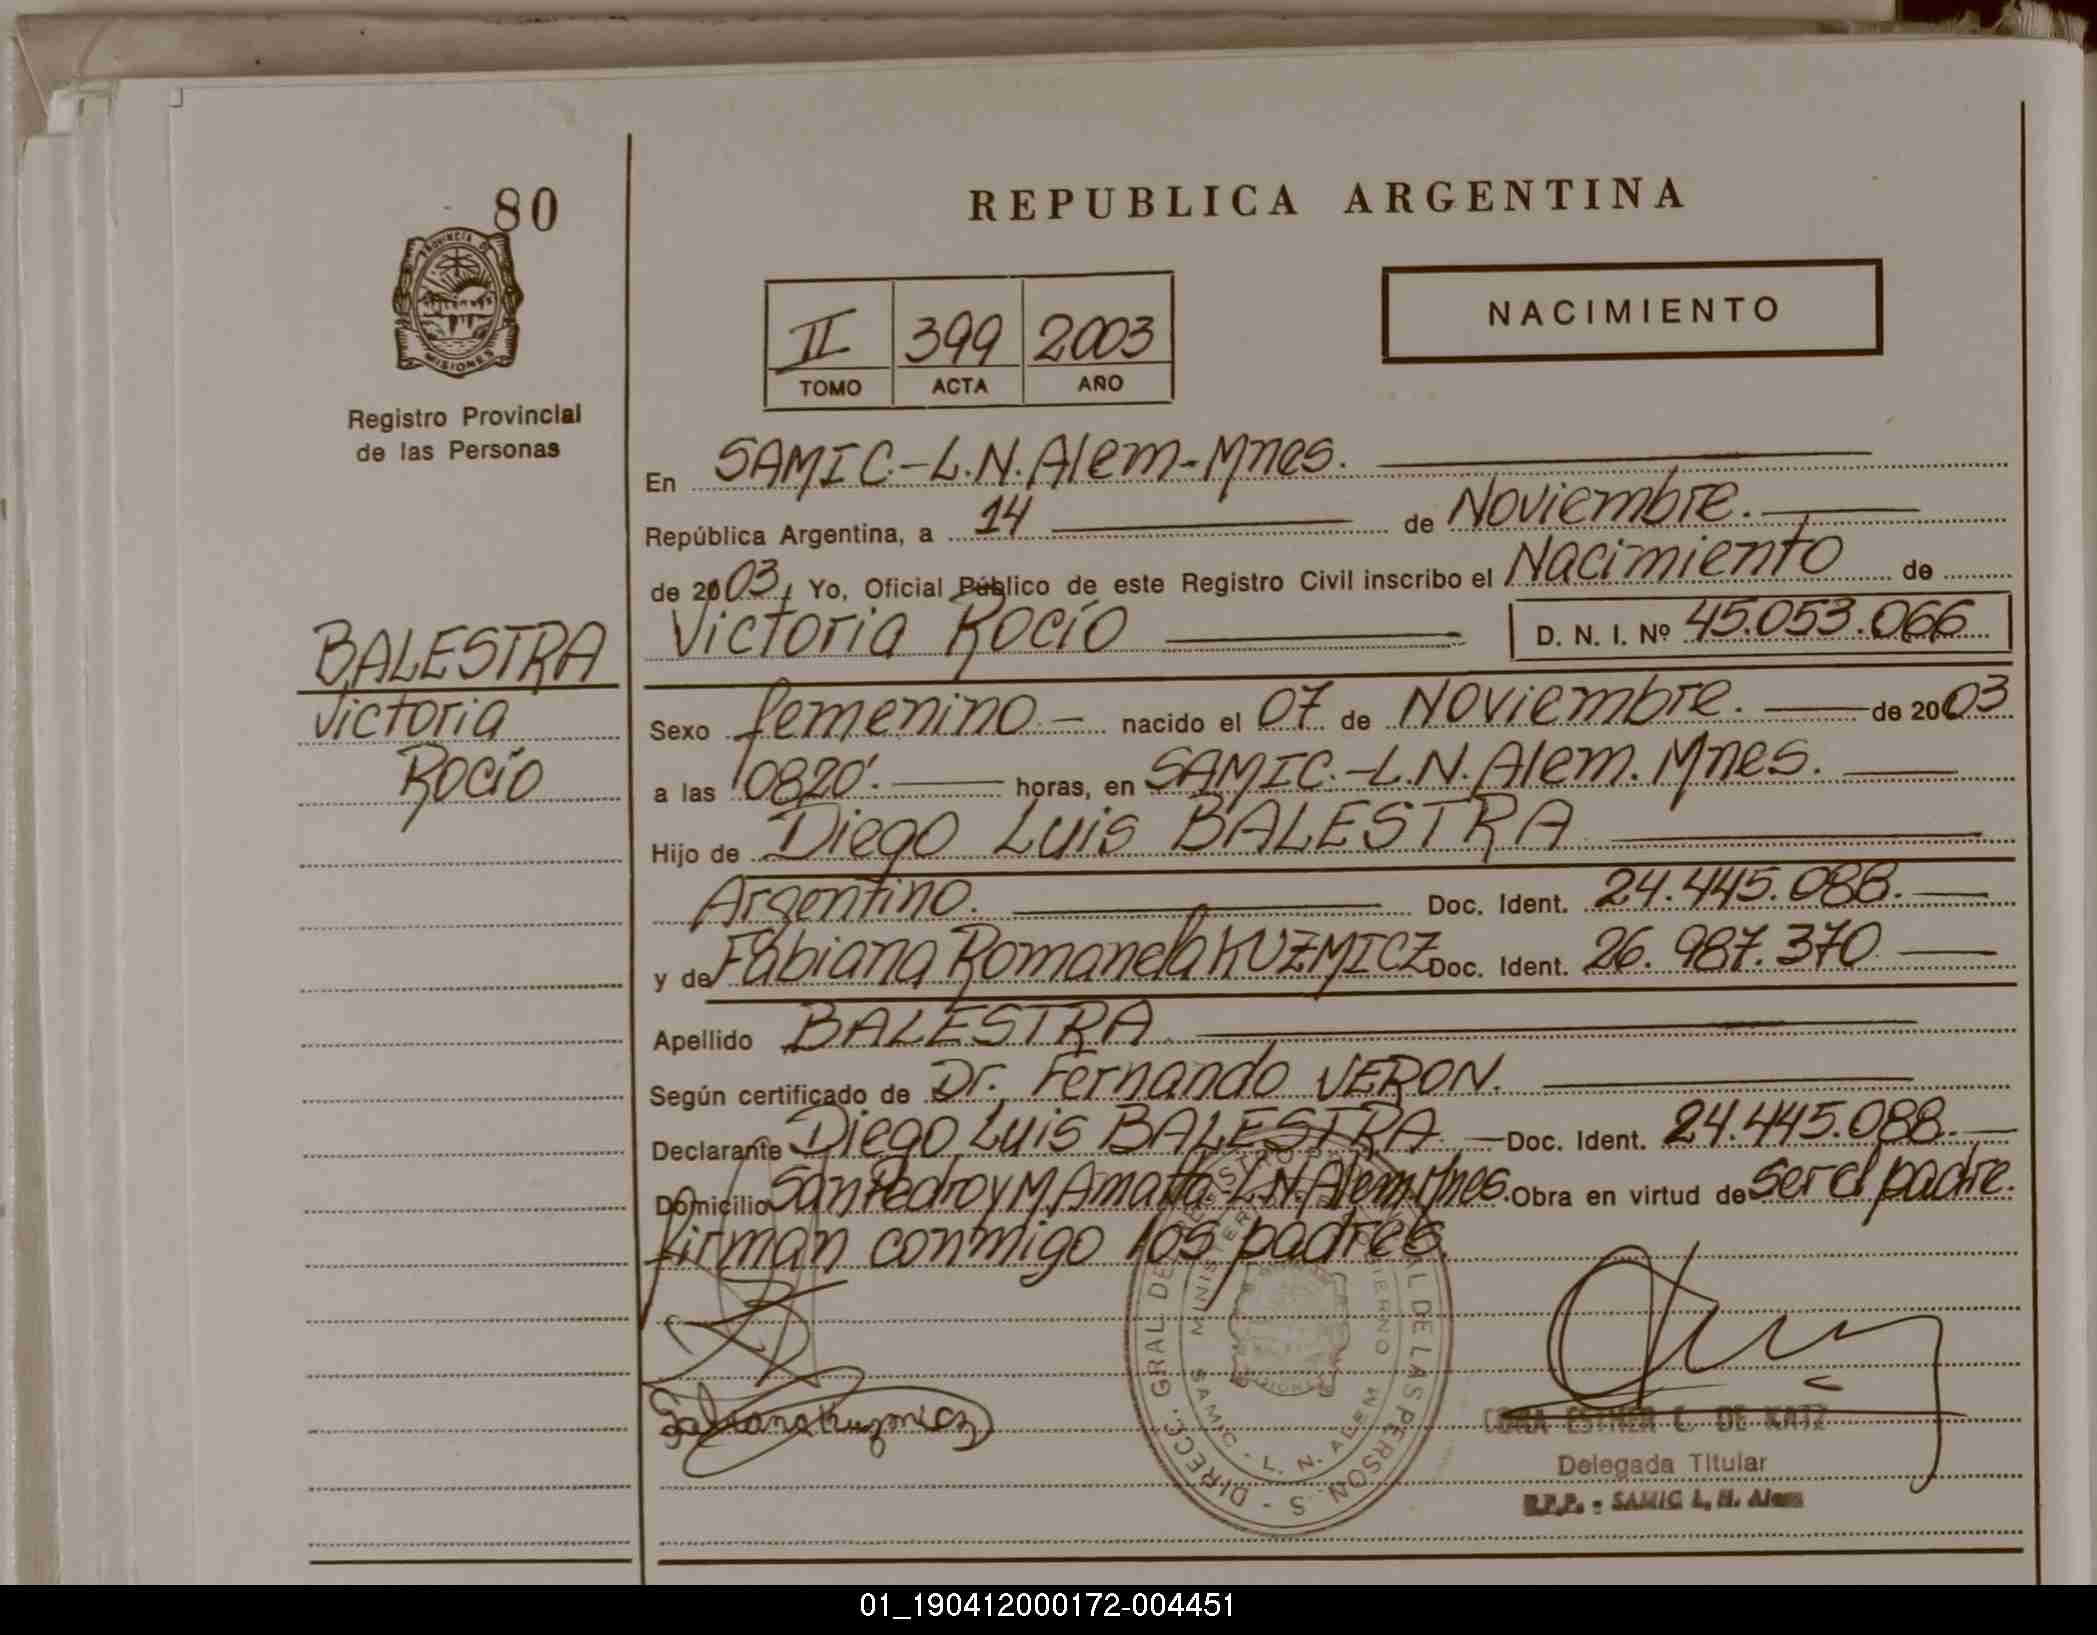 80
PROVINCIA DE
MISIONES
Registro Provincial
de las Personas
BALESTRA
Victoria
Rocío
REPUBLICA ARGENTINA
NACIMIENTO
II 399 2003
TOMO ACTA AÑO
En SAMIC.-L.N.Alem-Mnes.
República Argentina, a 14 de Noviembre.
de 2003, Yo, Oficial Público de este Registro Civil inscribo el Nacimiento de
Victoria Rocío D. N. I. Nº 45.053.066
Sexo femenino.- nacido el 07 de Noviembre. de 2003
a las 0820'. horas, en SAMIC.-L.N.Alem.Mnes.
Hijo de Diego Luis BALESTRA
Argentino. Doc. Ident. 24.445.088.
y de Fabiana Romanela KUZMICZ Doc. Ident. 26.987.370
Apellido BALESTRA
Según certificado de Dr. Fernando VERON.
Declarante Diego Luis BALESTRA.- Doc. Ident. 24.445.088.
Domicilio San Pedro y M. Amatta-L.N.Alem Mnes. Obra en virtud de ser el padre.
firman conmigo los padres.
DIRECC. GRAL DE REGISTRO PROVINCIAL DE LAS PERSONAS
MINISTERIO DE GOBIERNO
SAMIC - L. N. ALEM
Fabiana Kuzmicz
ESTHER C. DE KATZ
Delegada Titular
R.P.P. - SAMIC L. N. Alem
01_190412000172-004451